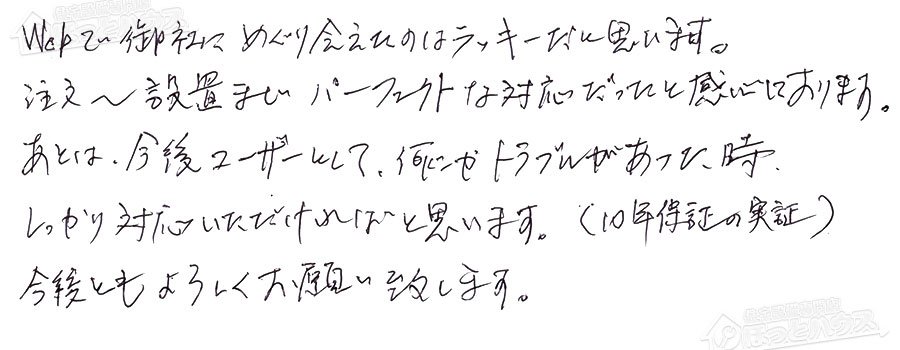 Webで御社にめぐり会えたのはラッキーだと思います。
注文〜設置までパーフェクトな対応だったと感じております。
あとは、今後ユーザーとして、何かトラブルがあった時、
しっかり対応いただければと思います。(10年保証の実証)
今後ともよろしくお願い致します。
ほっとハウス